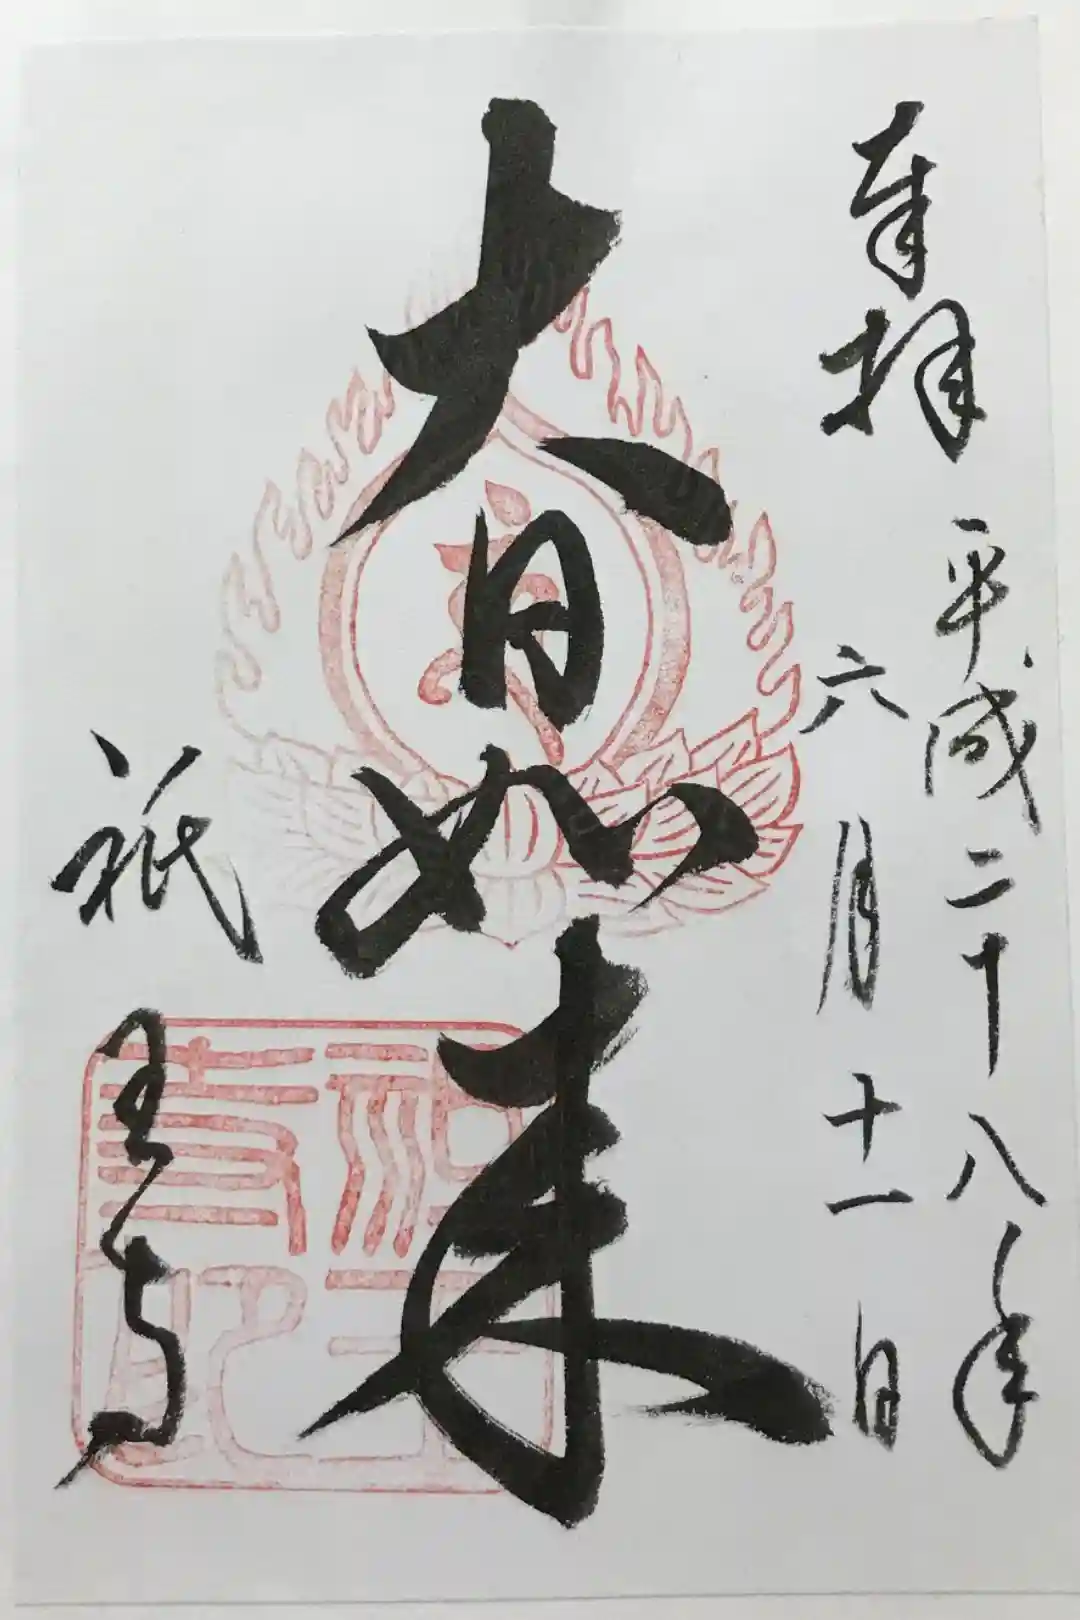 奉拝
平成二十八年
六月十一日
大日如来
祇王寺